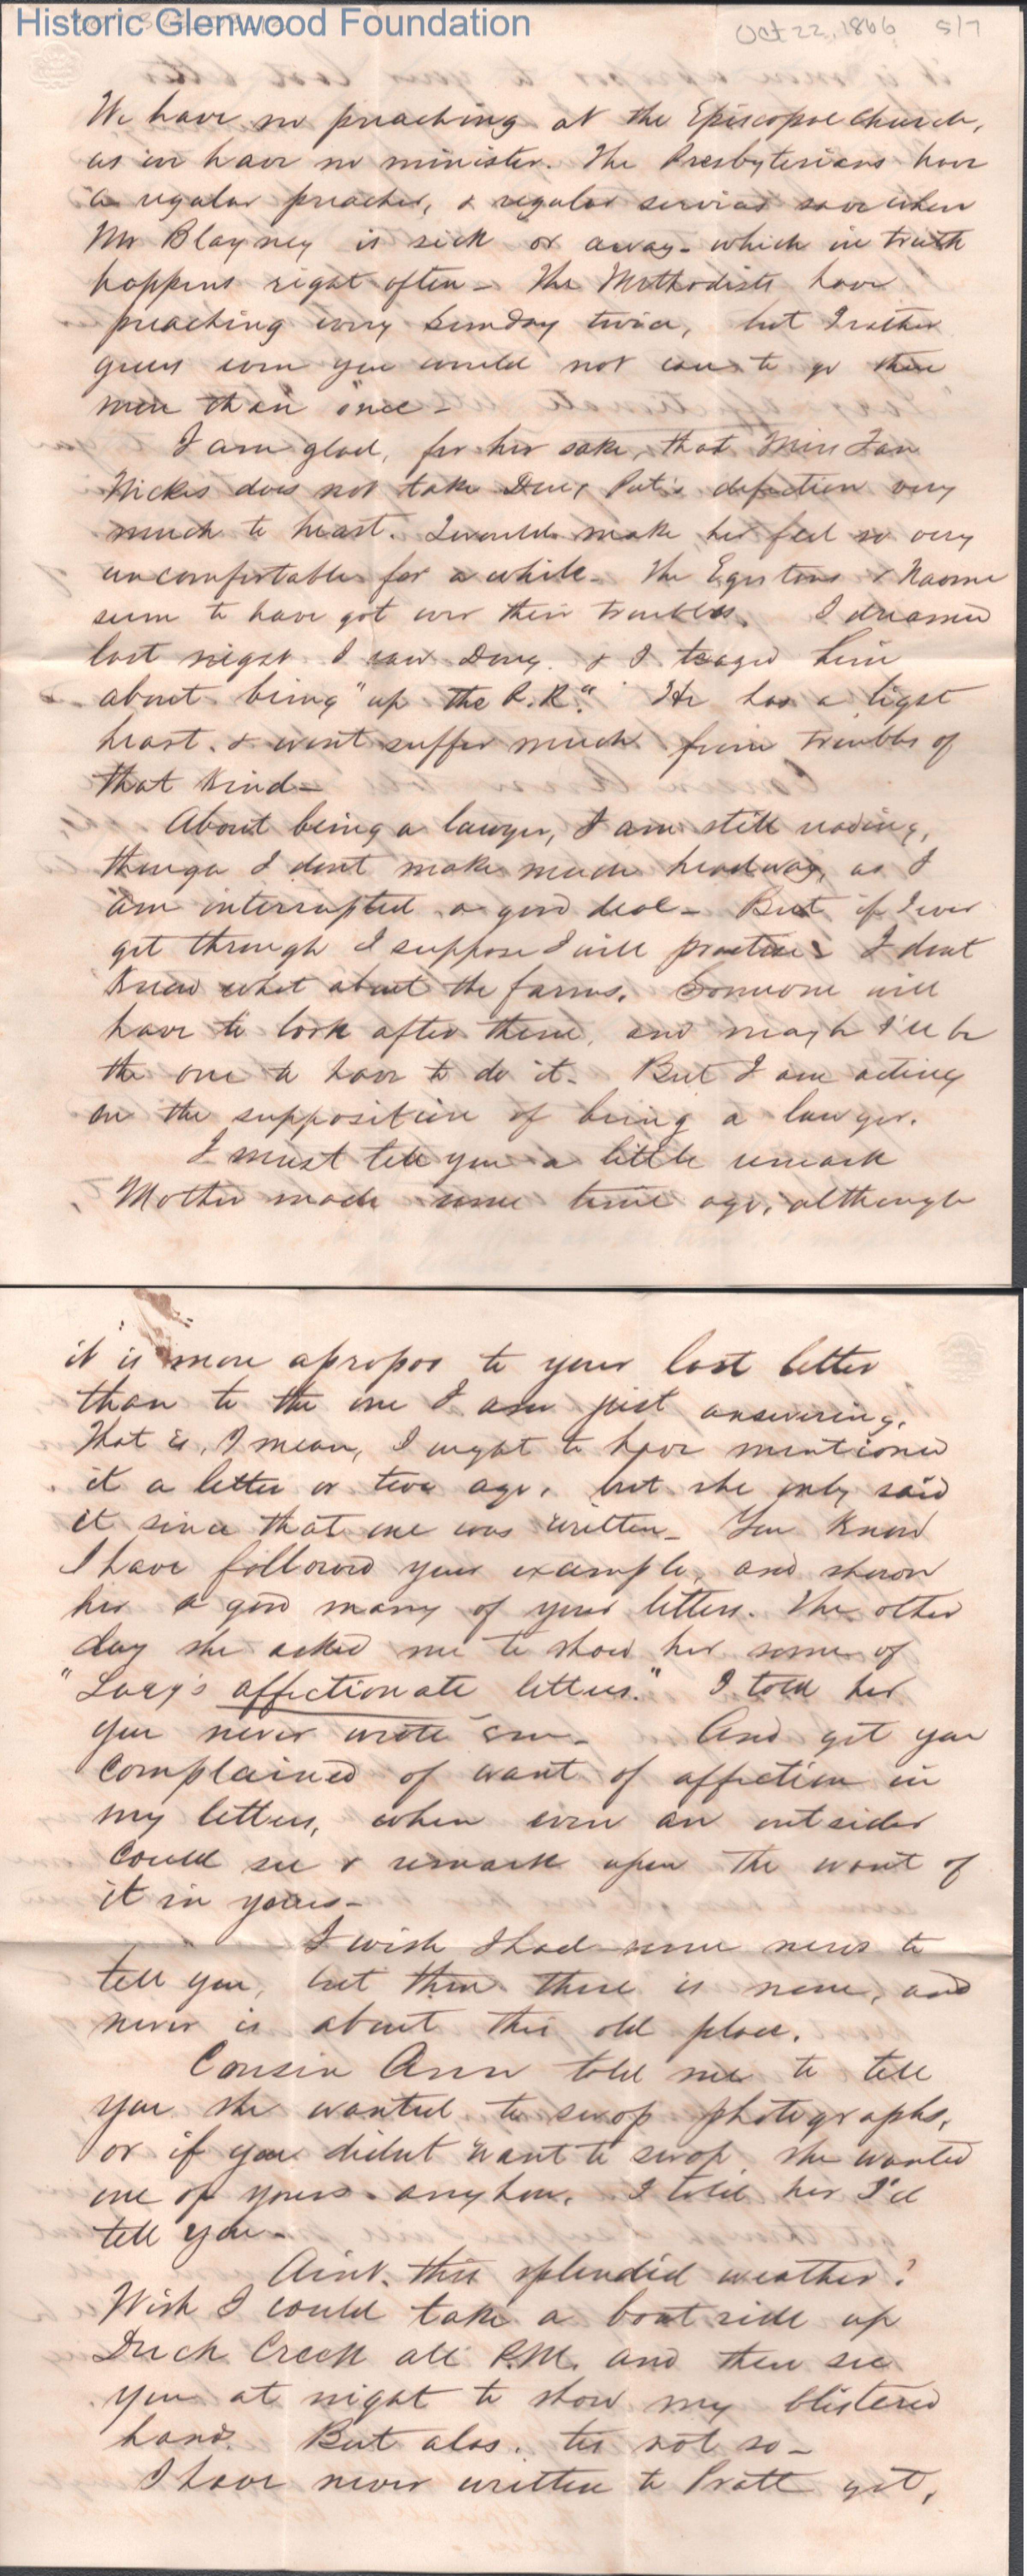 Historic Glenwood Foundation
Oct 22, 1866 5/7
We have no preaching at the Episcopal Church,
as we have no minister. The Presbyterians have
a regular preacher, & regular services save when
Mr Blayney is sick or away - which in truth
happens right often - The Methodists have
preaching every Sunday twice, but I rather
guess even you would not care to go there
more than once -
I am glad, for her sake, that Miss Fan
Hickes does not take Doug Pat's defection very
much to heart. I would make her feel so very
uncomfortable for a while - The & Naomi
seem to have got over their troubles. I dreamed
last night I saw Doug. & I teased him
about being "up the R.R." He has a light
heart & wont suffer much from troubles of
that kind -
About being a lawyer, I am still reading,
though I dont make much headway, as I
am interrupted a good deal - But if I ever
get through I suppose I will practice - I dont
know what about the farms. Someone will
have to look after them, and maybe I'll be
the one to have to do it - But I am acting
on the supposition of being a lawyer.
I must tell you a little remark
Mother made some time ago, although
it is more apropos to your last letter
than to the one I am just answering.
That is, I mean, I ought to have mentioned
it a letter or two ago, but she only said
it since that one was written - You know
I have followed your example, and shown
her a good many of your letters. The other
day she asked me to show her some of
"Lucy's affectionate letters." I told her
you never wrote em - And yet you
complained of want of affection in
my letters, when even an outsider
could see & remark upon the want of
it in yours -
I wish I had some news to
tell you, but then there is none, and
never is about this old place.
Cousin Ann told me to tell
you she wanted to swop photographs,
or if you didnt want to swop she wanted
one of yours anyhow. I told her I'd
tell you -
Aint this splendid weather?
Wish I could take a boat ride up
Duck Creek all P.M. and then see
you at night to show my blistered
hand. But alas. tis not so -
I have never written to Pratt yet,